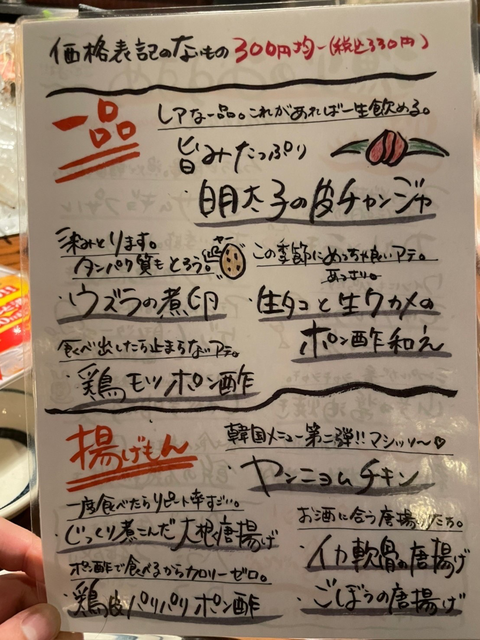 価格表記のなもの 300円均一(税込330円)
一品
レアな一品。これがあれば一生飲める。
旨みたっぷり
・明太子の皮チャンジャ
タンパク質もとろう。
・ウズラの煮卵
この季節にめっちゃ良いアテ。
あっさり。
・生タコと生ワカメの
ポン酢和え
食べ出したら止まらないアテ。
・鶏モツポン酢
揚げもん
韓国メニュー第二弾!!マシッソ〜♡
・ヤンニョムチキン
一度食べたらリピート率すごい。
・じっくり煮こんだ大根の唐揚げ
お酒に合う唐揚げたち。
・イカ軟骨の唐揚げ
・ごぼうの唐揚げ
ポン酢で食べるからカロリーゼロ。
・鶏皮パリパリポン酢